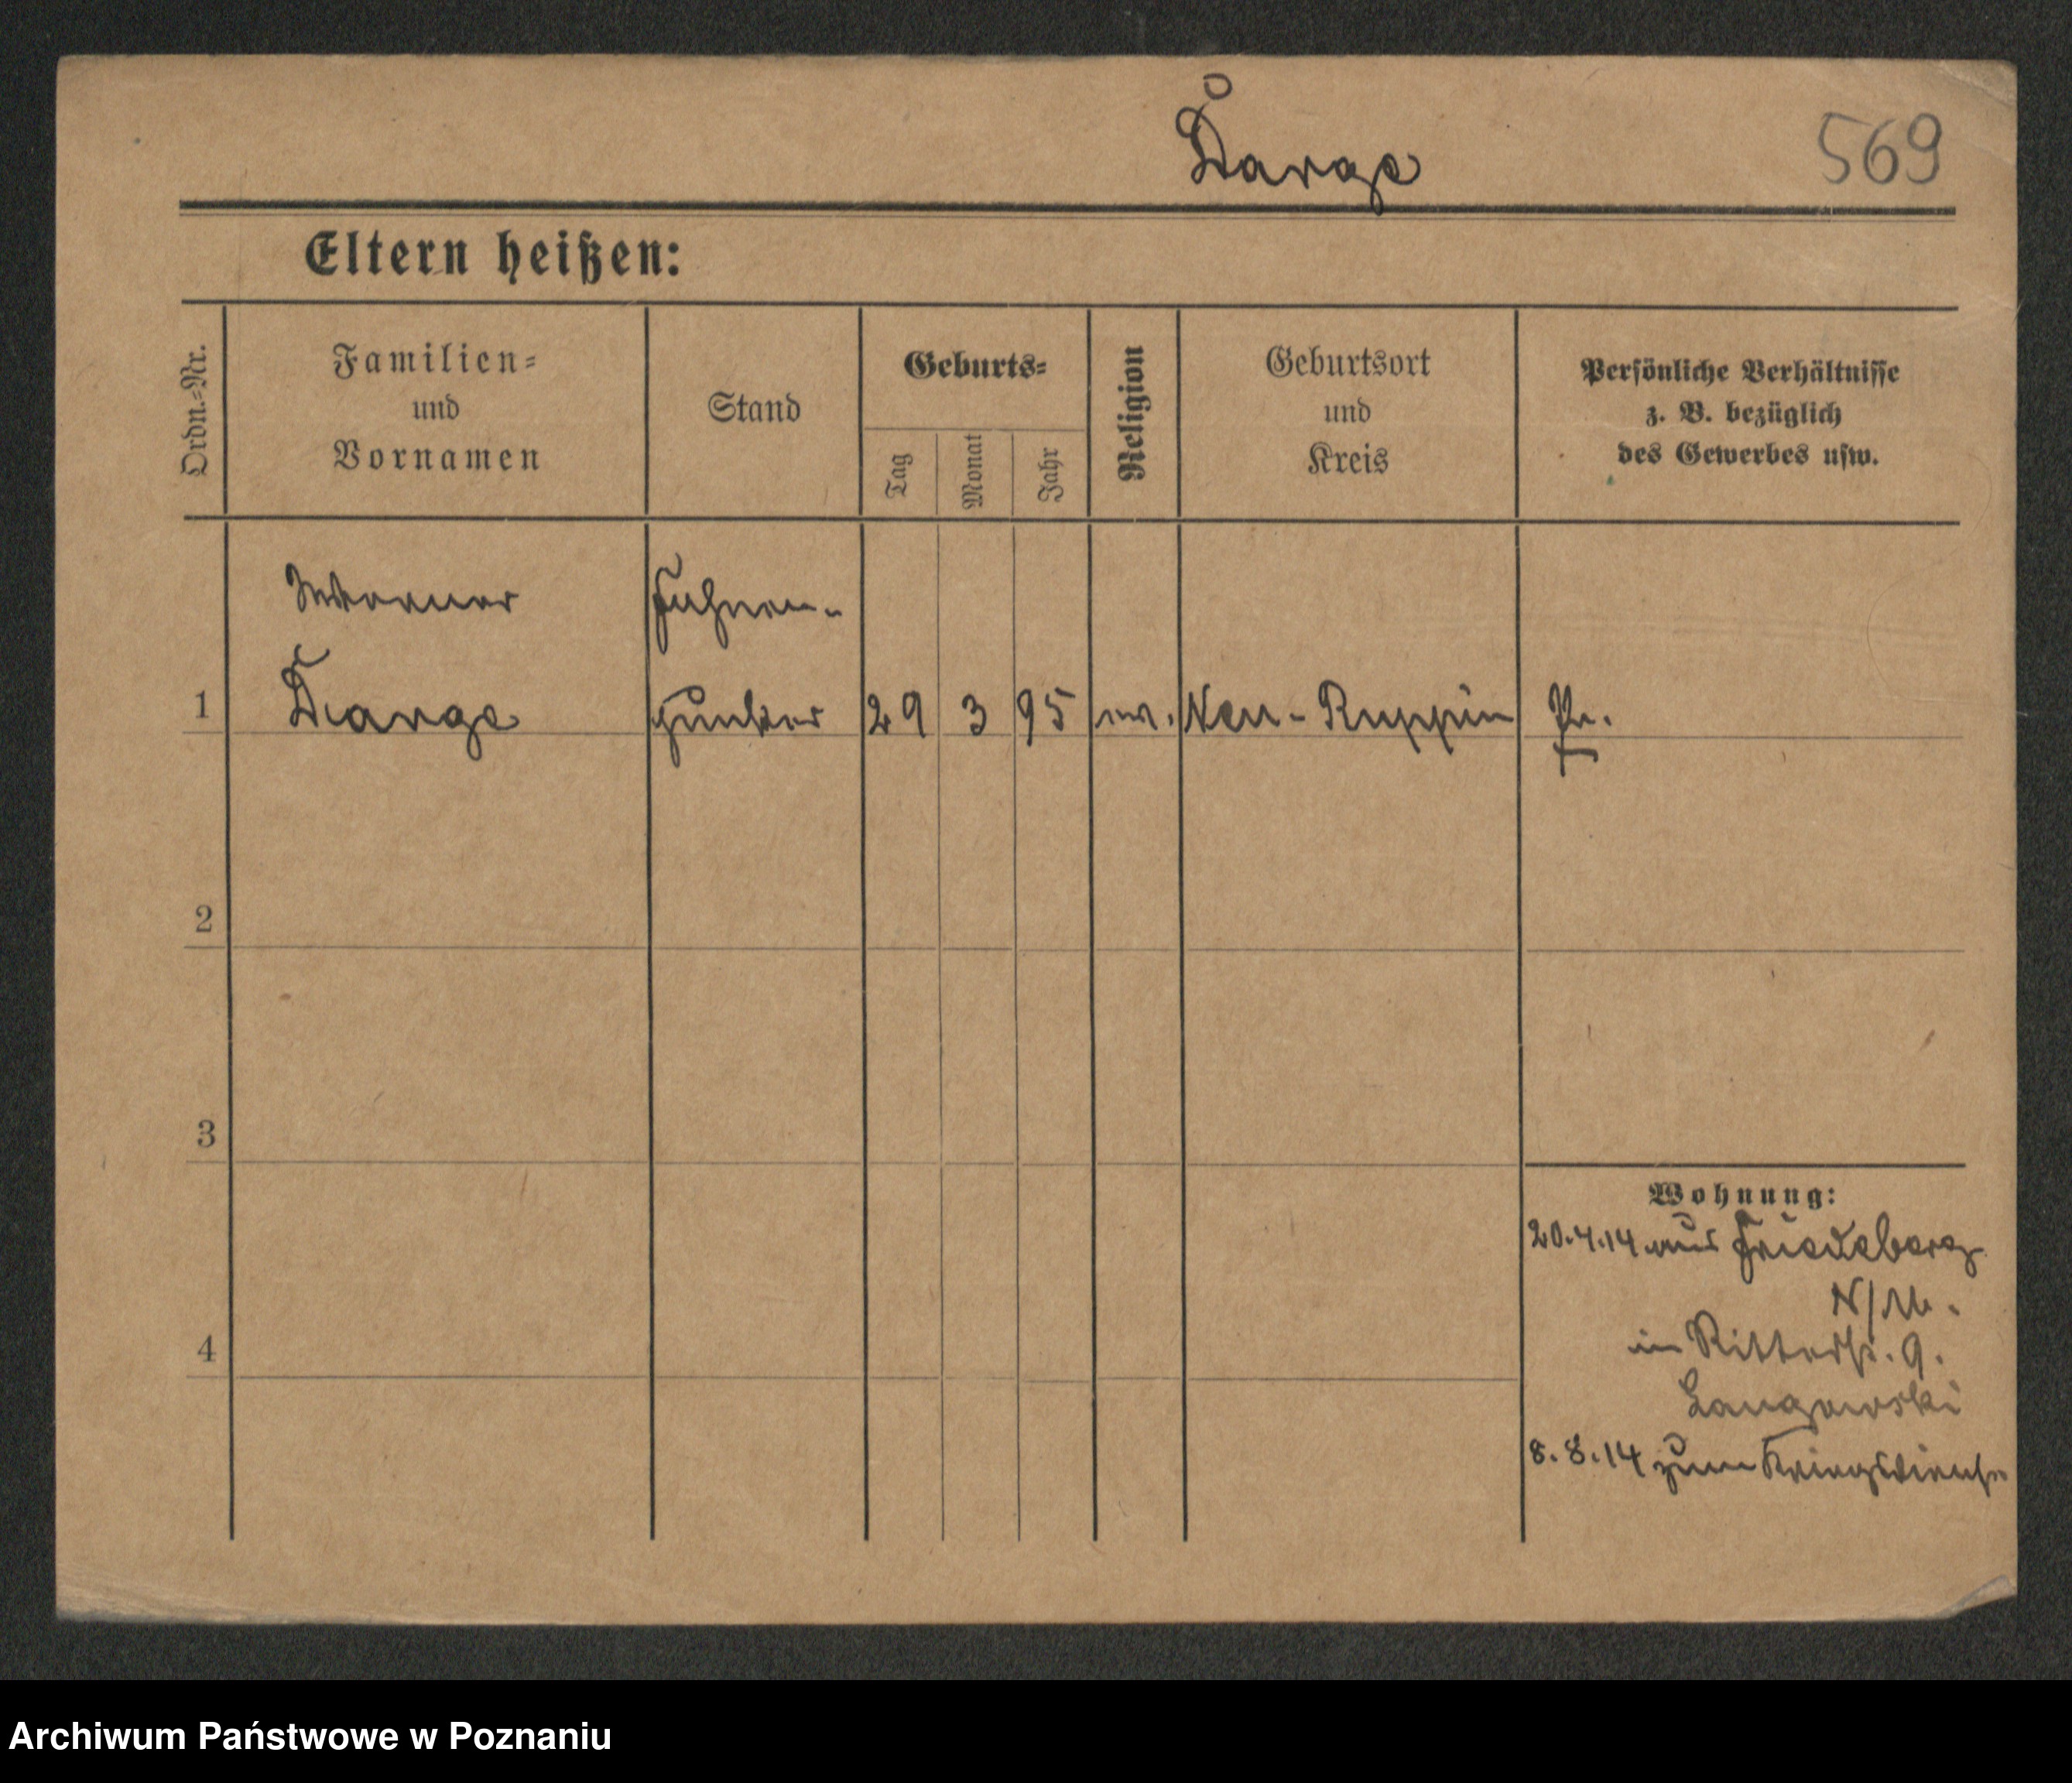 Darge
569
Eltern heißen:
Ordn.-Nr.
Familien-
und
Vornamen
Stand
Geburts-
Tag
Monat
Jahr
Religion
Geburtsort
und
Kreis
Persönliche Verhältnisse
z. B. bezüglich
des Gewerbes usw.
Werner
Darge
Fahnen-
junker
1
29
3
95
ev.
Neu-Ruppin
Pr.
2
3
4
Wohnung:
20.4.14 aus Friedeberg
N/M.
in Ritterstr. 9.
Langowski
8.8.14 zum Kriegsdienst
Archiwum Państwowe w Poznaniu